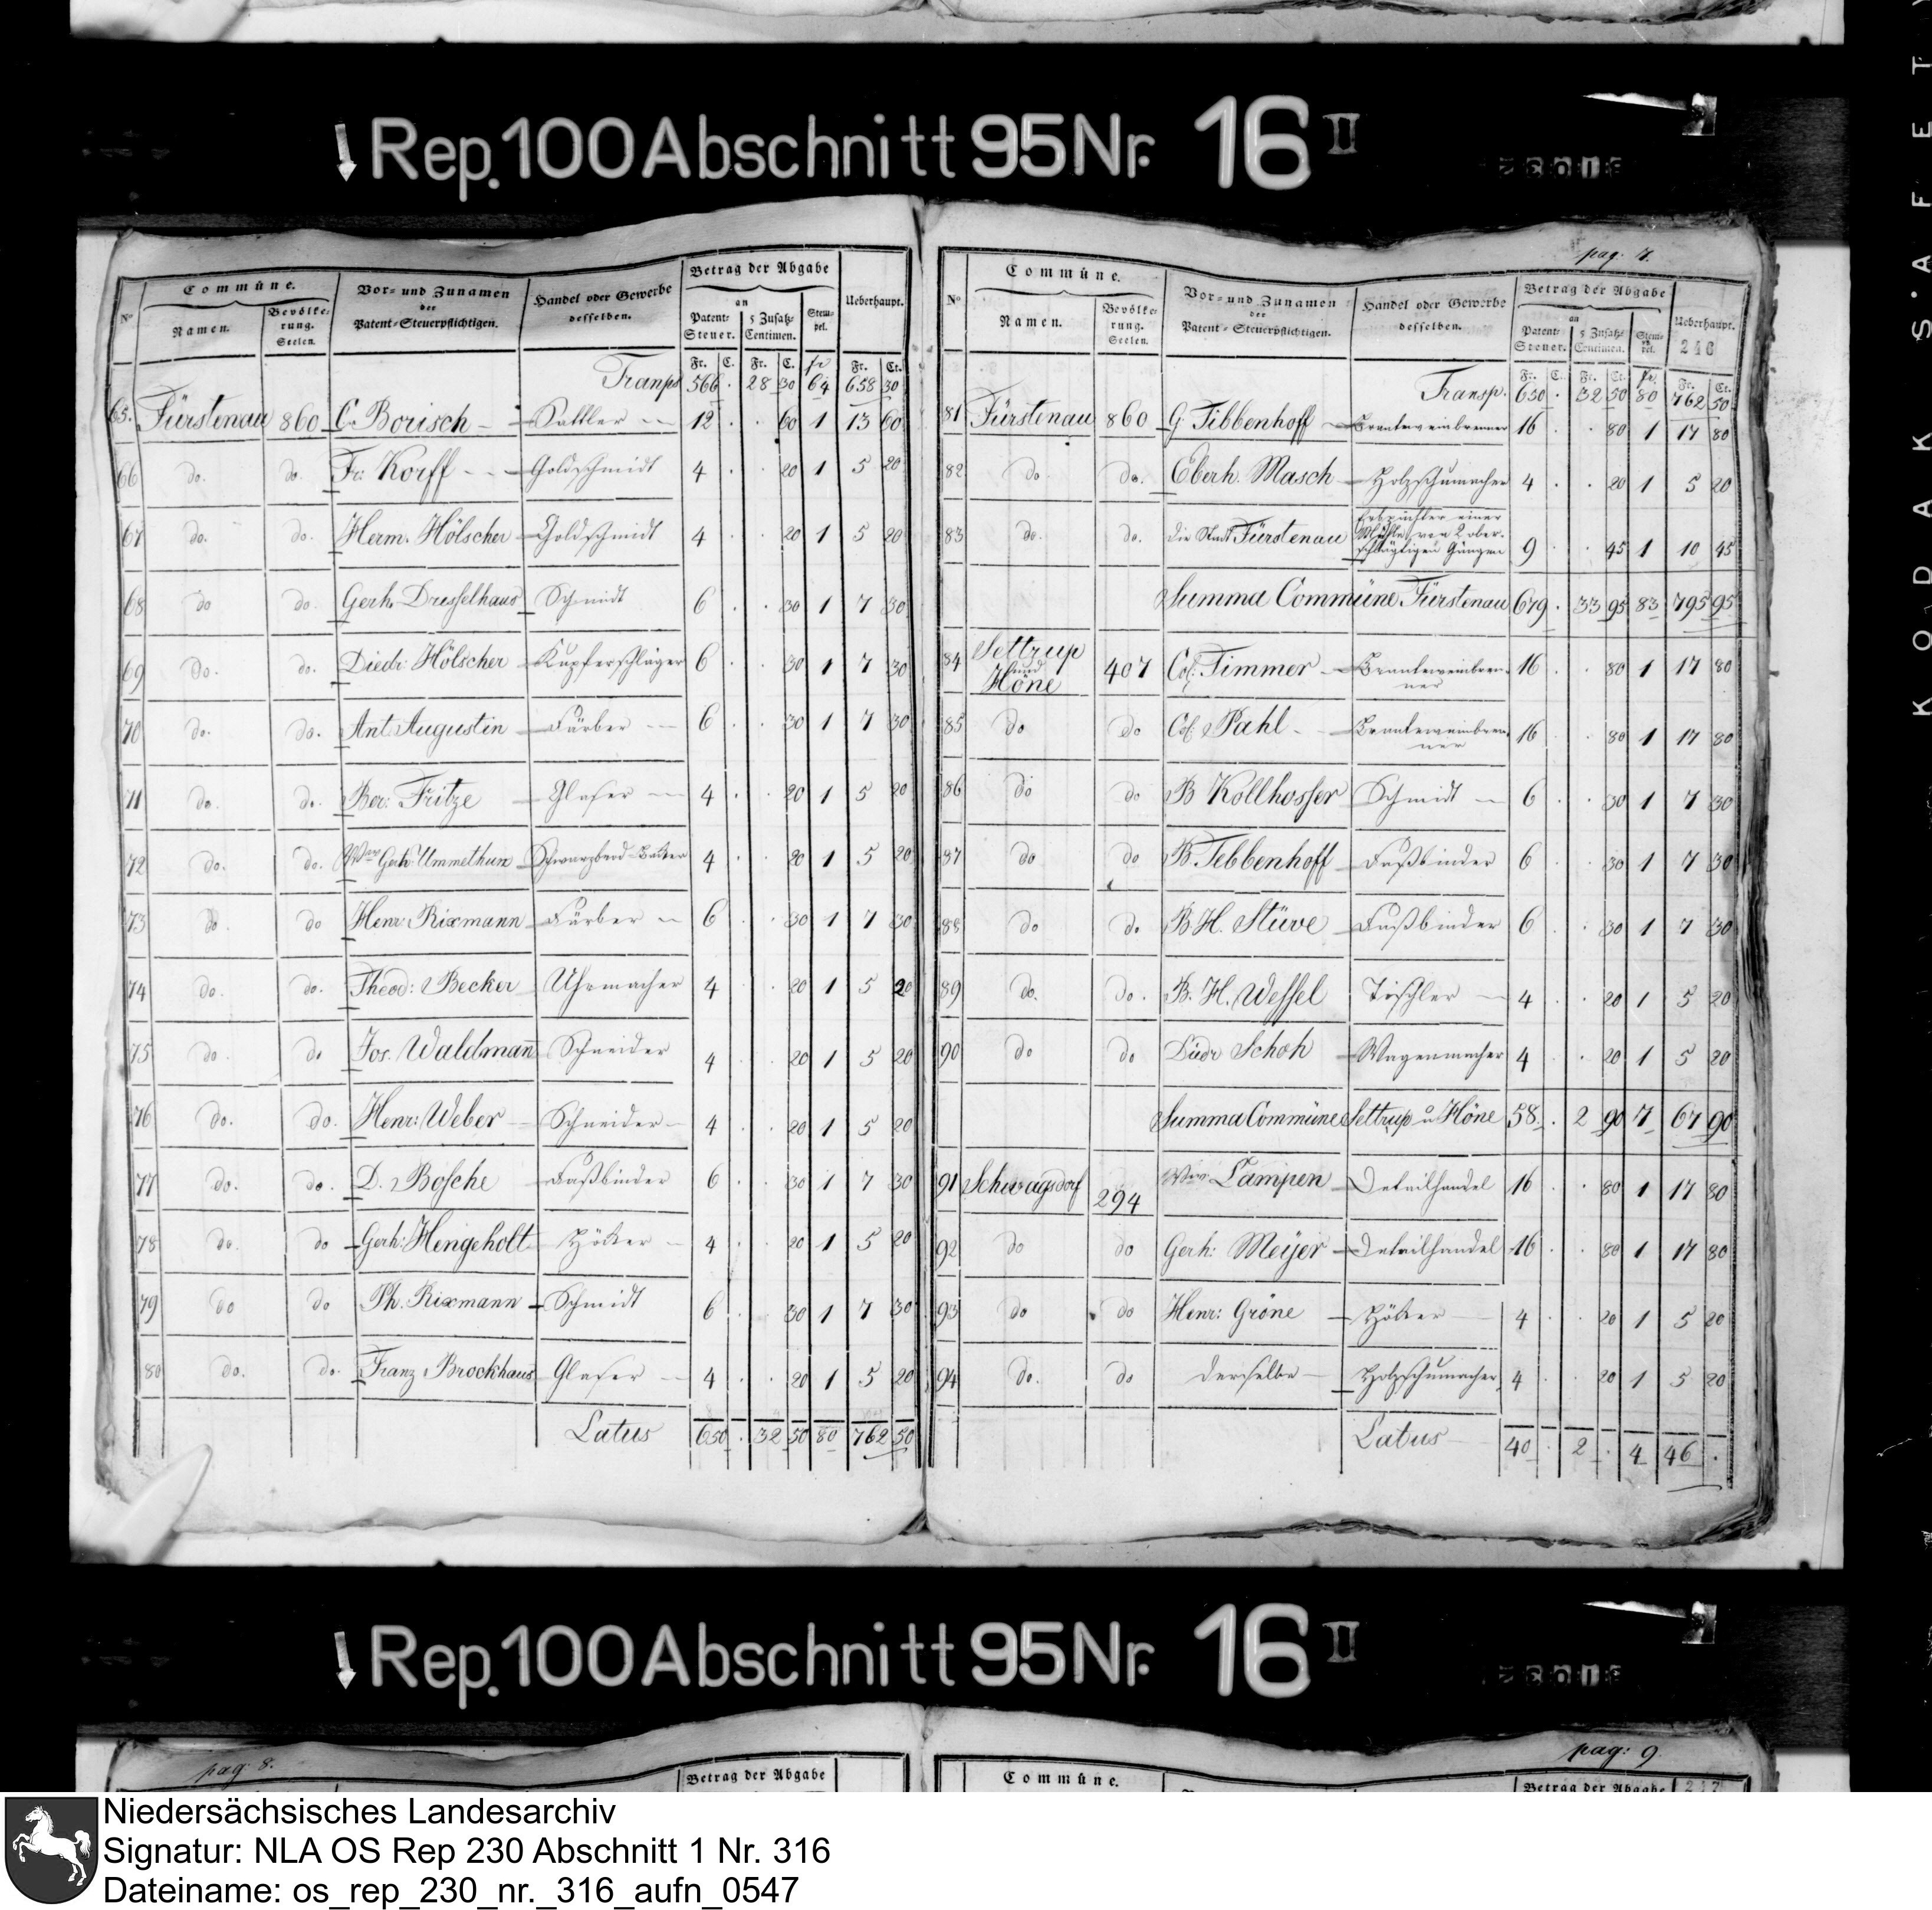 Rep. 100 Abschnitt 95 Nr. 16 II
Commüne. Vor- und Zunamen der Patent-Steuerpflichtigen. Handel oder Gewerbe desselben. Betrag der Abgabe Ueberhaupt.
Nº Namen. Bevölkerung. Seelen. an Patent-Steuer. 5 Zusatz-Centimen. Stempel.
Fr. C. Fr. C. fr Fr. Ct.
Transp 566 . 28 30 64 658 30
65. Fürstenau 860 C. Borisch Sattler 12 . . 60 1 13 60
66 do. do. Fr. Korff Goldschmidt 4 . . 20 1 5 20
67 do. do. Herm. Hölscher Goldschmidt 4 . . 20 1 5 20
68 do do. Gerh. Dresselhaus Schmidt 6 . . 30 1 7 30
69 do. do. Diedr: Hölscher Kupferschläger 6 . . 30 1 7 30
70 do. do. Ant. Augustin Färber 6 . . 30 1 7 30
71 do. do. Ber: Fritze Glaser 4 . . 20 1 5 20
72 do. do. Wwe Gerh. Ummethun Schwarzbrod-Becker 4 . . 20 1 5 20
73 do. do Henr. Rixmann Färber 6 . . 30 1 7 30
74 do. do. Theod: Becker Uhrmacher 4 . . 20 1 5 20
75 do. do Jos. Waldmañ Schneider 4 . . 20 1 5 20
76 do. do. Henr: Weber Schneider 4 . . 20 1 5 20
77 do. do. D. Bosche Faßbinder 6 . . 30 1 7 30
78 do. do Gerh: Hengeholt Höker 4 . . 20 1 5 20
79 do do Ph. Rixmann Schmidt 6 . . 30 1 7 30
80 do. do. Franz Brockhaus Glaser 4 . . 20 1 5 20
Latus 650 . 32 50 80 762 50
pag. 7.
Commüne. Vor- und Zunamen der Patent-Steuerpflichtigen. Handel oder Gewerbe desselben. Betrag der Abgabe Ueberhaupt.
Nº Namen. Bevölkerung. Seelen. an Patent-Steuer. 5 Zusatz-Centimen. Stempel. 246
Fr. C. Fr. Ct. fr. Fr. Ct.
Transp. 650 . 32 50 80 762 50
81 Fürstenau 860 G. Tibbenhoff Branteweinbrenner 16 . . 80 1 17 80
82 do. do. Eberh. Masch Holzschumacher 4 . . 20 1 5 20
83 do. do. die Stadt Fürstenau Erbpächter einer
Mühle von 2 ober-
schlägtigen Gängen 9 . . 45 1 10 45
Summa Commüne Fürstenau 679 . 33 95 83 795 95
84 Settrup
und
Höne 407 Col: Timmer Branteweinbren-
ner 16 . . 80 1 17 80
85 do do Col: Pahl Branteweinbren-
ner 16 . . 80 1 17 80
86 do do B Kollhosser Schmidt 6 . . 30 1 7 30
87 do do B. Tebbenhoff Faßbinder 6 . . 30 1 7 30
88 do do B. H. Stüve Faßbinder 6 . . 30 1 7 30
89 do. do. B. H. Wessel Tischler 4 . . 20 1 5 20
90 do do Lüdr Schoh Wagenmacher 4 . . 20 1 5 20
Summa Commüne Settrup u Höne 58 . 2 90 7 67 90
91 Schwagsdorf 294 Wwe Lampen Detailhandel 16 . . 80 1 17 80
92 do do Gerh: Meyer Detailhandel 16 . . 80 1 17 80
93 do do Henr: Gröne Höker 4 . . 20 1 5 20
94 do. do derselbe Holzschumacher 4 . . 20 1 5 20
Latus 40 . 2 . 4 46 .
Rep. 100 Abschnitt 95 Nr. 16 II
pag. 8. pag: 9.
Betrag der Abgabe Commüne. Betrag der Abgabe 247
KODAK SAFETY
Niedersächsisches Landesarchiv
Signatur: NLA OS Rep 230 Abschnitt 1 Nr. 316
Dateiname: os_rep_230_nr._316_aufn_0547